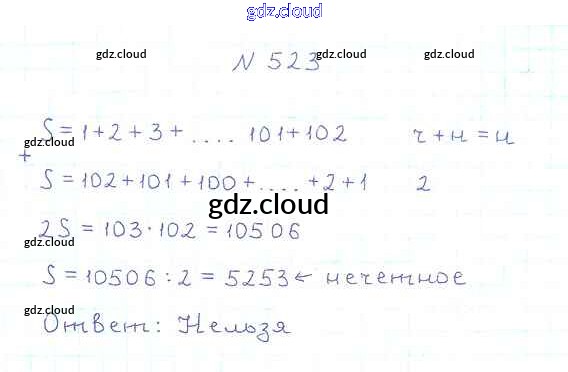 gdz.cloud
gdz.cloud gdz.cloud gdz.cloud
N 523
S = 1 + 2 + 3 + .... 101 + 102 ч + н = н
gdz.cloud gdz.cloud
+
S = 102 + 101 + 100 + .... + 2 + 1 2
gdz.cloud
2S = 103 · 102 = 10506
gdz.cloud
S = 10506 : 2 = 5253 ← нечетное
gdz.cloud
Ответ: Нельзя
gdz.cloud